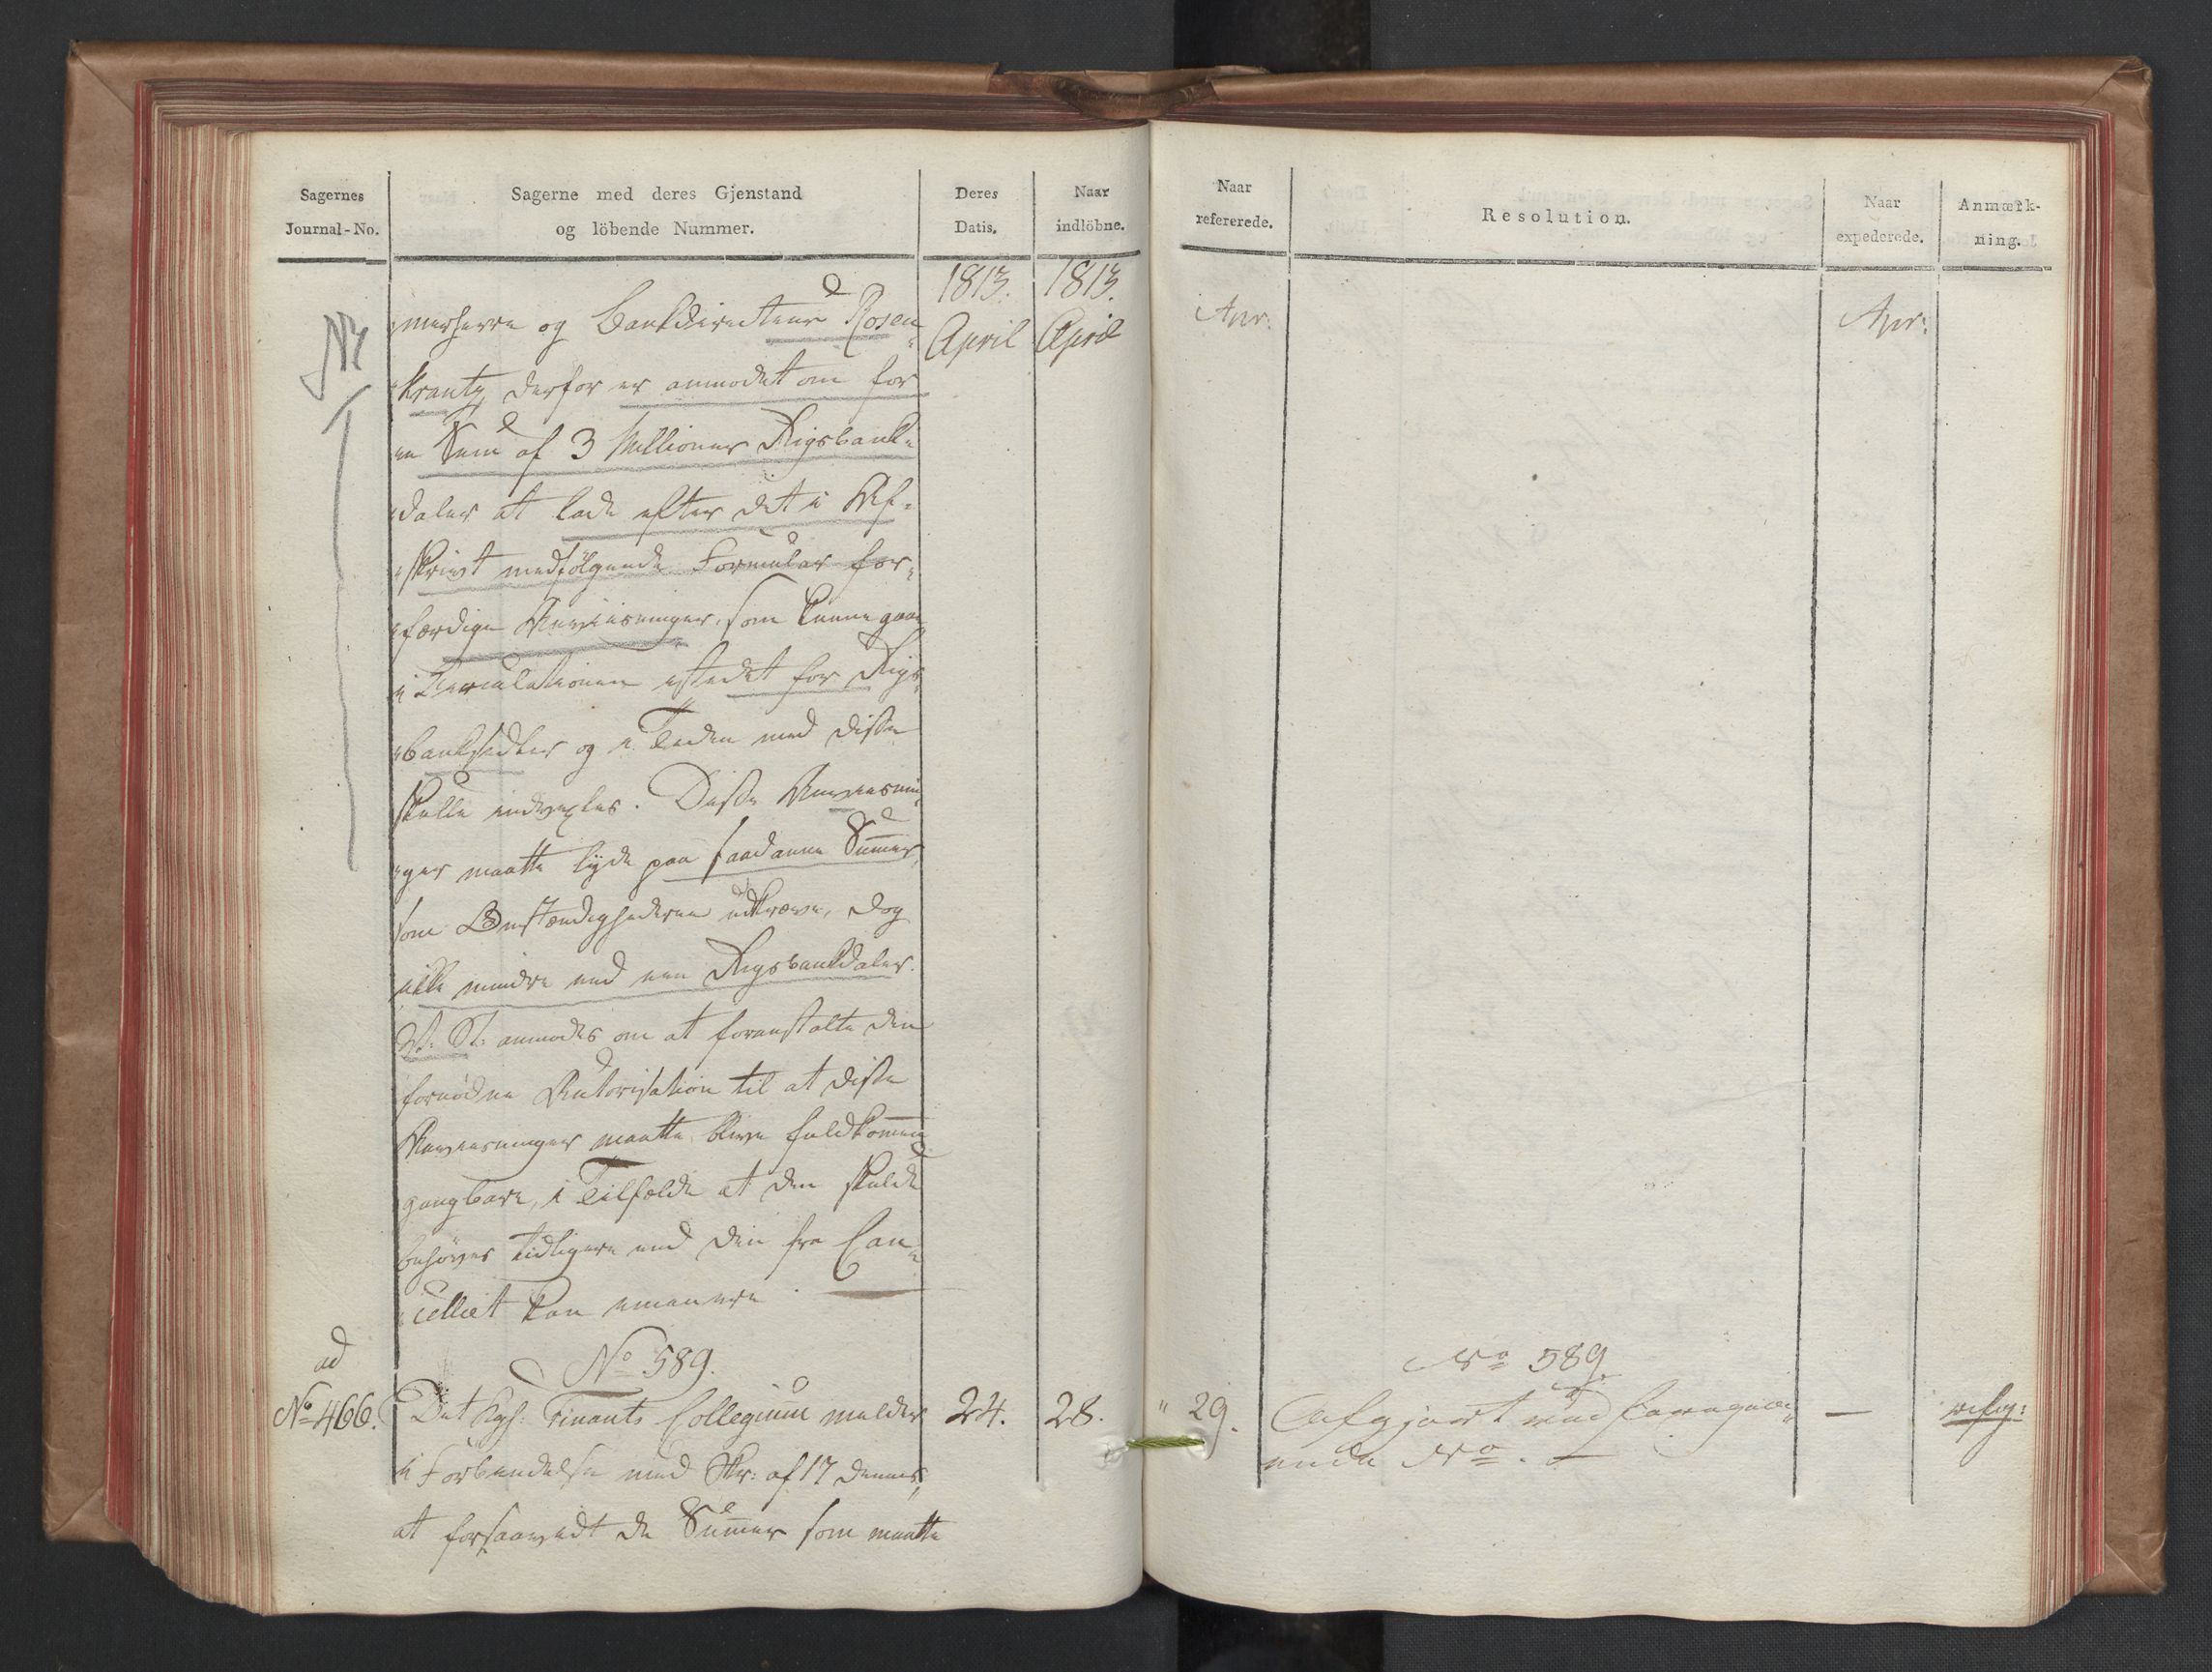 Sagernes
Journal-No.
Sagerne med deres Gjenstand
og löbende Nummer.
Deres
Datis.
Naar
indlöbne.
1813. 1813.
April April
merherre og Bankdirecteur Rosen-
krantz derfor er anmodet om for
en Sum af 3 Millioner Rigsbank-
daler at lade efter det i Af-
skrivt medfölgende Formular for-
færdige Anviisninger, som kunne gaae
i Circulationen istedet for Rigs-
banksedler og i Tiden med disse
skulle indvexles. Disse Anviisnin-
ger maatte lyde paa saadanne Summer,
som Omstændighederne udkræve, dog
ikke mindre end een Rigsbankdaler.
St: anmodes om at foranstalte den
fornödne Autorisation til at disse
Anviisninger maatte blive fuldkommen
gangbare, i Tilfælde at den skulde
behöves tidligere end den fra Can-
celliet kan emanere.
ad
No 466.
No 589.
Det Kgl: Finants Collegium melder 24. 28.
i Forbindelse med Skr: af 17 dennes,
at forsaavidt de Summer som maatte
Naar
refererede.
Resolution.
Naar
expederede.
Anmærk-
ning.
Apr: Apr:
No 589.
" 29. Afgjort ved foregaa- —
ende No. —